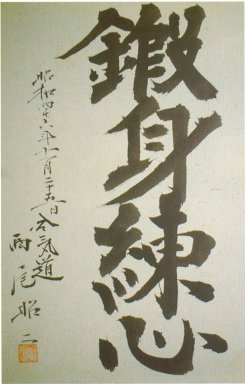 鍛身練心
昭和四十六年十一月二十五日 合気道
西尾昭二